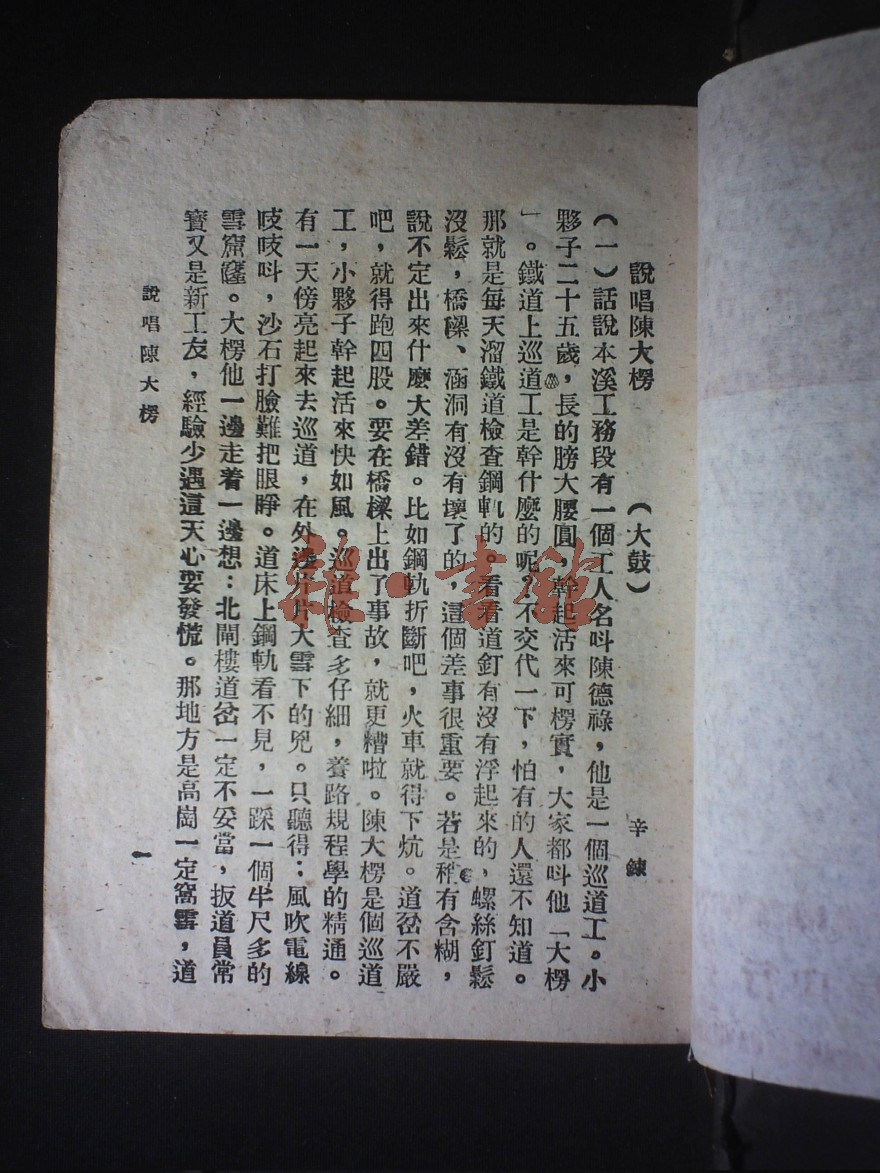 說唱陳大楞 （大鼓） 辛鍊
（一）話說本溪工務段有一個工人名呌陳德祿，他是一個巡道工。小
夥子二十五歲，長的膀大腰圓，幹起活來可楞實，大家都呌他「大楞
」。鐵道上巡道工是幹什麼的呢？不交代一下，怕有的人還不知道。
那就是每天溜鐵道檢查鋼軌的。看看道釘有沒有浮起來的，螺絲釘鬆
沒鬆，橋樑、涵洞有沒有壞了的，這個差事很重要。若是稍有含糊，
說不定出來什麼大差錯。比如鋼軌折斷吧，火車就得下炕。道岔不嚴
吧，就得跑四股。要在橋樑上出了事故，就更糟啦。陳大楞是個巡道
工，小夥子幹起活來快如風。巡道檢查多仔細，養路規程學的精通。
有一天傍亮起來去巡道，在外邊片片大雪下的兇。只聽得：風吹電線
吱吱呌，沙石打臉難把眼睜。道床上鋼軌看不見，一踩一個半尺多的
雪窟窿。大楞他一邊走着一邊想：北閘樓道岔一定不妥當，扳道員常
寶又是新工友，經驗少遇這天心要發慌。那地方是高崗一定窩雪，道
說唱陳大楞
一
雜·書館